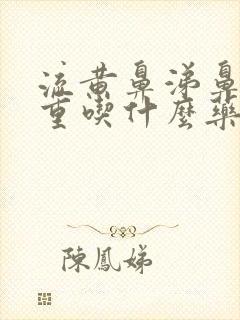 流黄鼻涕鼻
重喫什麼藥
陳鳳娣